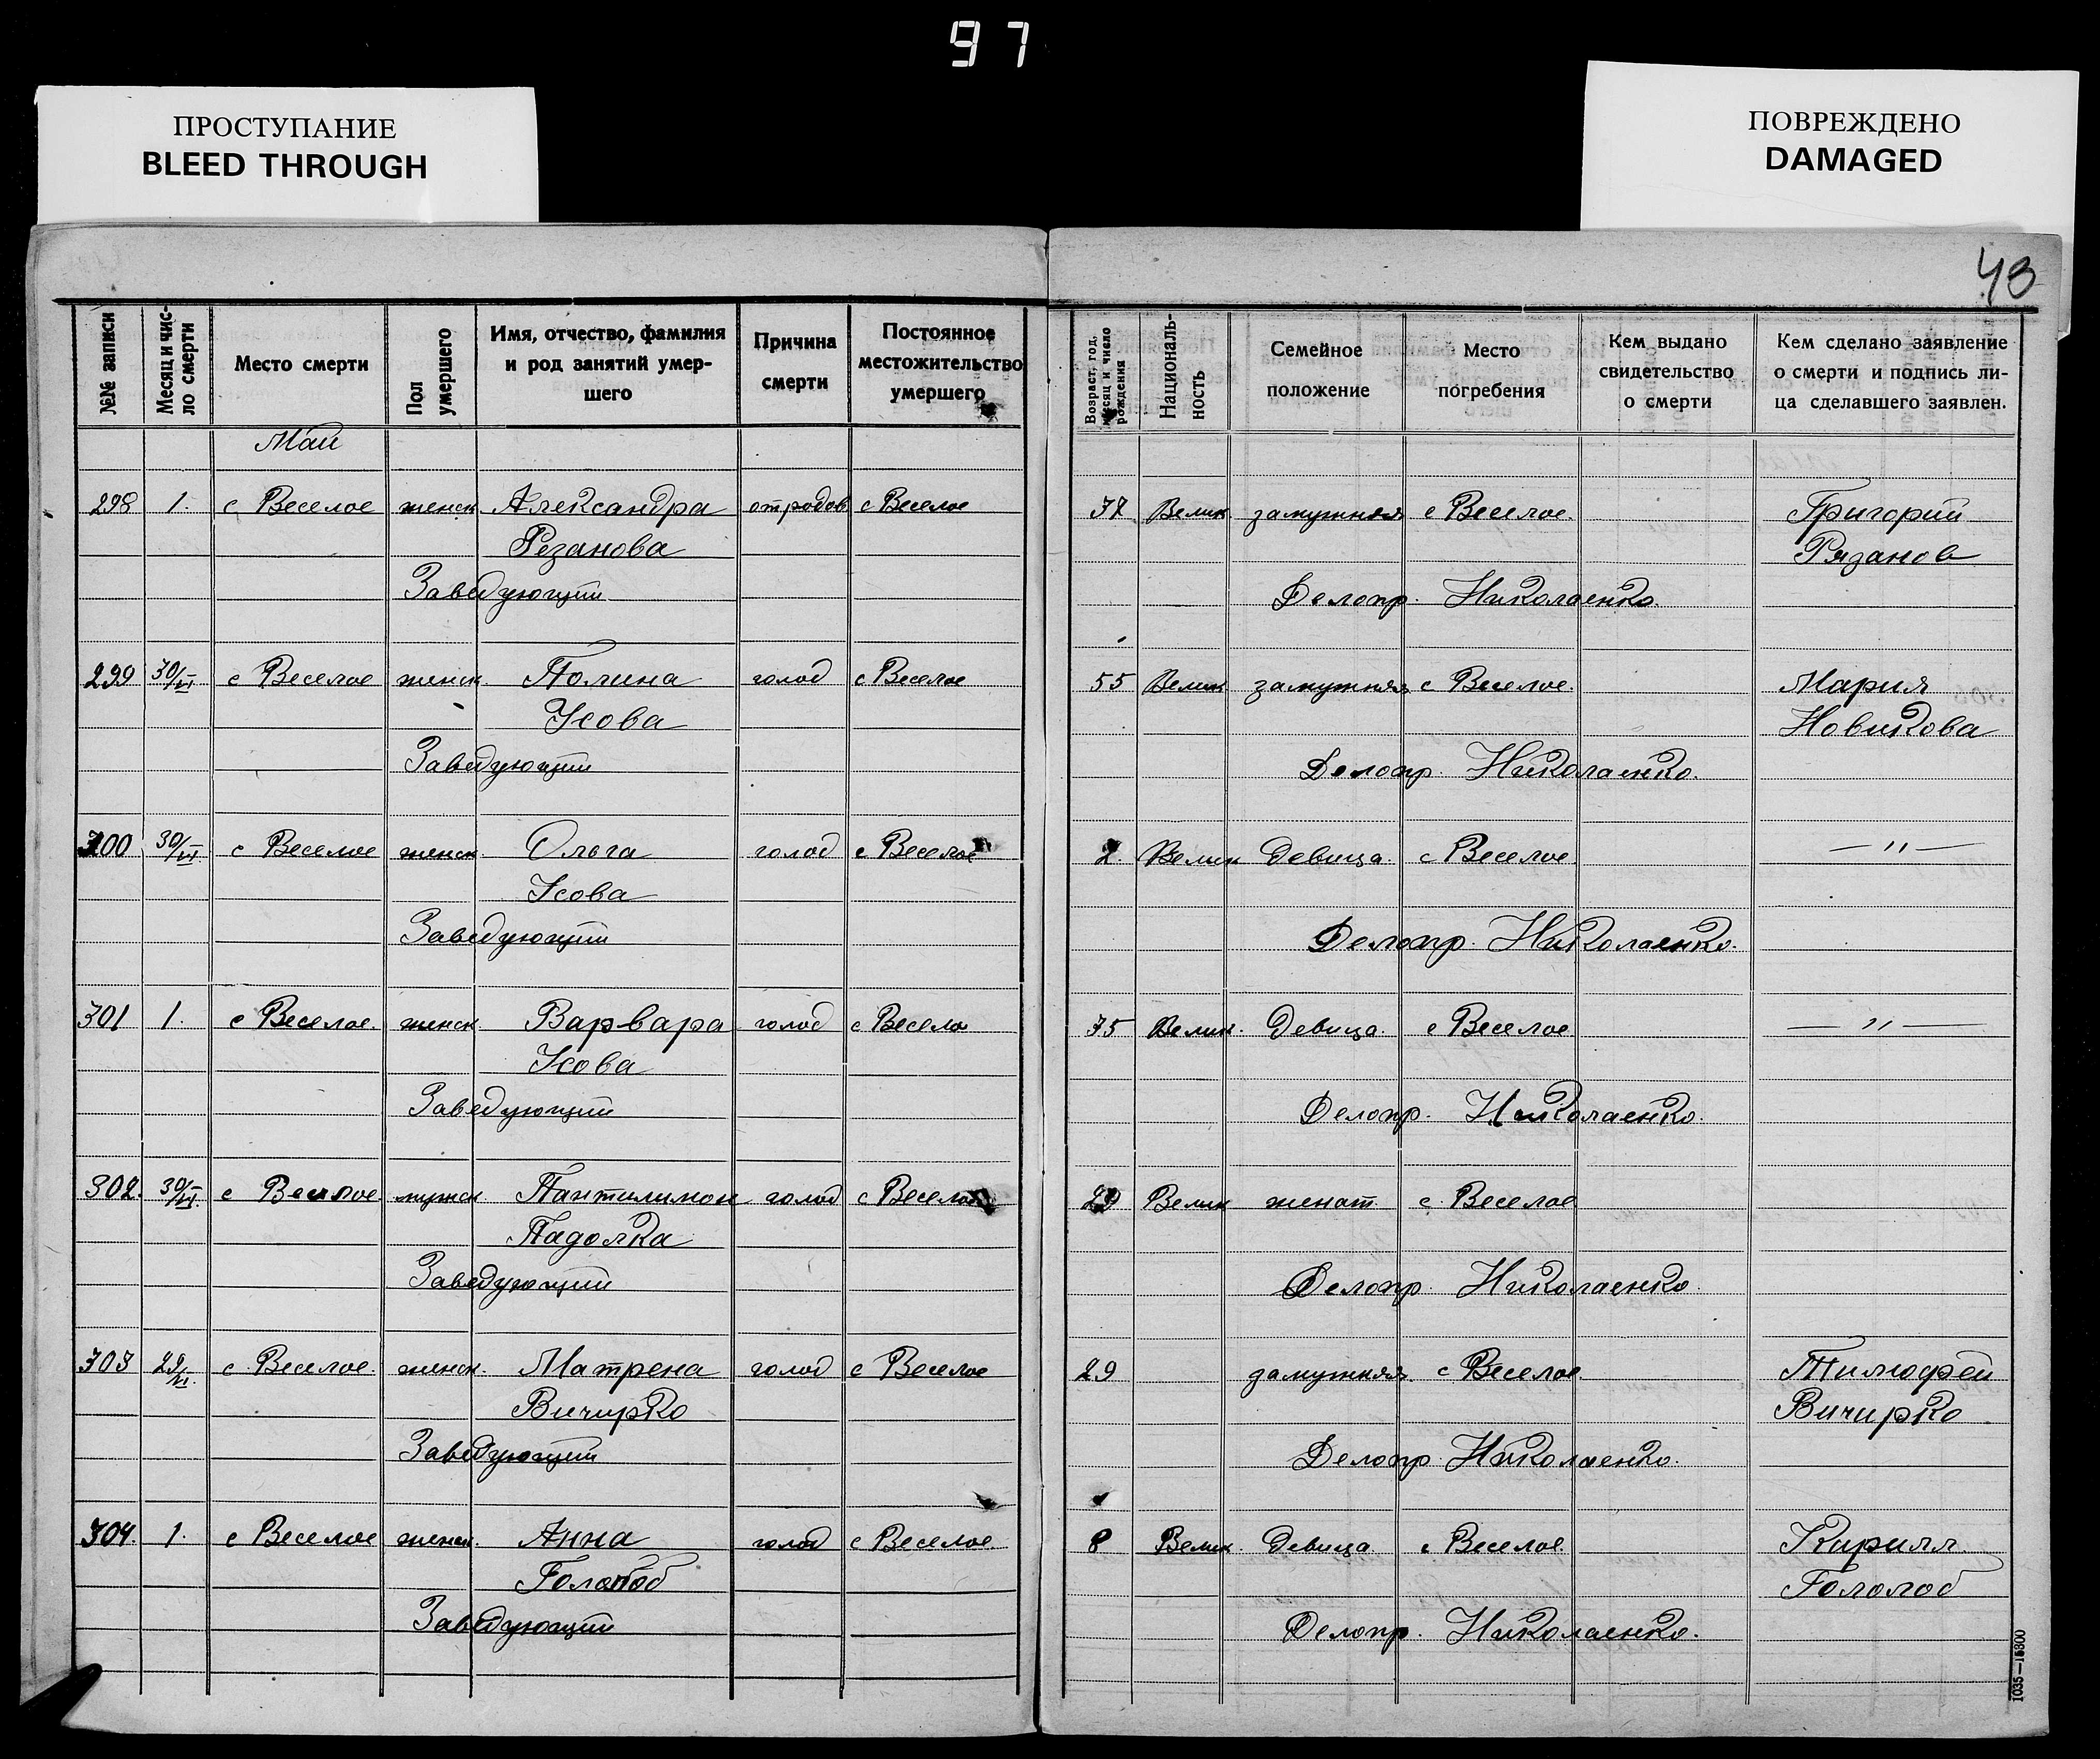 97
ПРОСТУПАНИЕ
BLEED THROUGH
ПОВРЕЖДЕНО
DAMAGED
43
№№ записи
Месяц и чис-
ло смерти
Место смерти
Пол
умершего
Имя, отчество, фамилия
и род занятий умер-
шего
Причина
смерти
Постоянное
местожительство
умершего
Возраст, год,
месяц и число
рождения
Националь-
ность
Семейное
положение
Место
погребения
Кем выдано
свидетельство
о смерти
Кем сделано заявление
о смерти и подпись ли-
ца сделавшего заявлен.
Май
298 1. с Веселое женск Александра от родов с Веселое 37 Велик. замужняя с Веселое. Григорий
Резанова Рязанов
Заведующий Делопр. Николаенко.
299 30/VI с Веселое женск. Полина голод с Веселое 55 Велик замужняя с Веселое. Мария
Усова Новикова
Заведующий Делопр. Николаенко.
300 30/VI с Веселое женск. Ольга голод с Веселое 2. Велик Девица. с Веселое — " —
Усова
Заведующий Делопр. Николаенко.
301 1. с Веселое. женск. Варвара голод с Весело 75 Велик. Девица. с Веселое — " —
Усова
Заведующий Делопр. Николаенко.
302. 30/VI. с Веселое мужск Пантилимон голод с Веселое 29 Велик женат. с Веселое
Падолка
Заведующий Делопр. Николаенко.
303 29/VI. с Веселое. женск. Матрена голод с Веселое 29 замужняя с Веселое. Тимофей
Вичирко Вичирко
Заведующий Делопр. Николаенко.
304. 1. с Веселое женск. Анна голод с Веселое. 8 Велик. Девица. с Веселое Кирилл
Гололоб Гололоб
Заведующий Делопр. Николаенко.
1035—15300